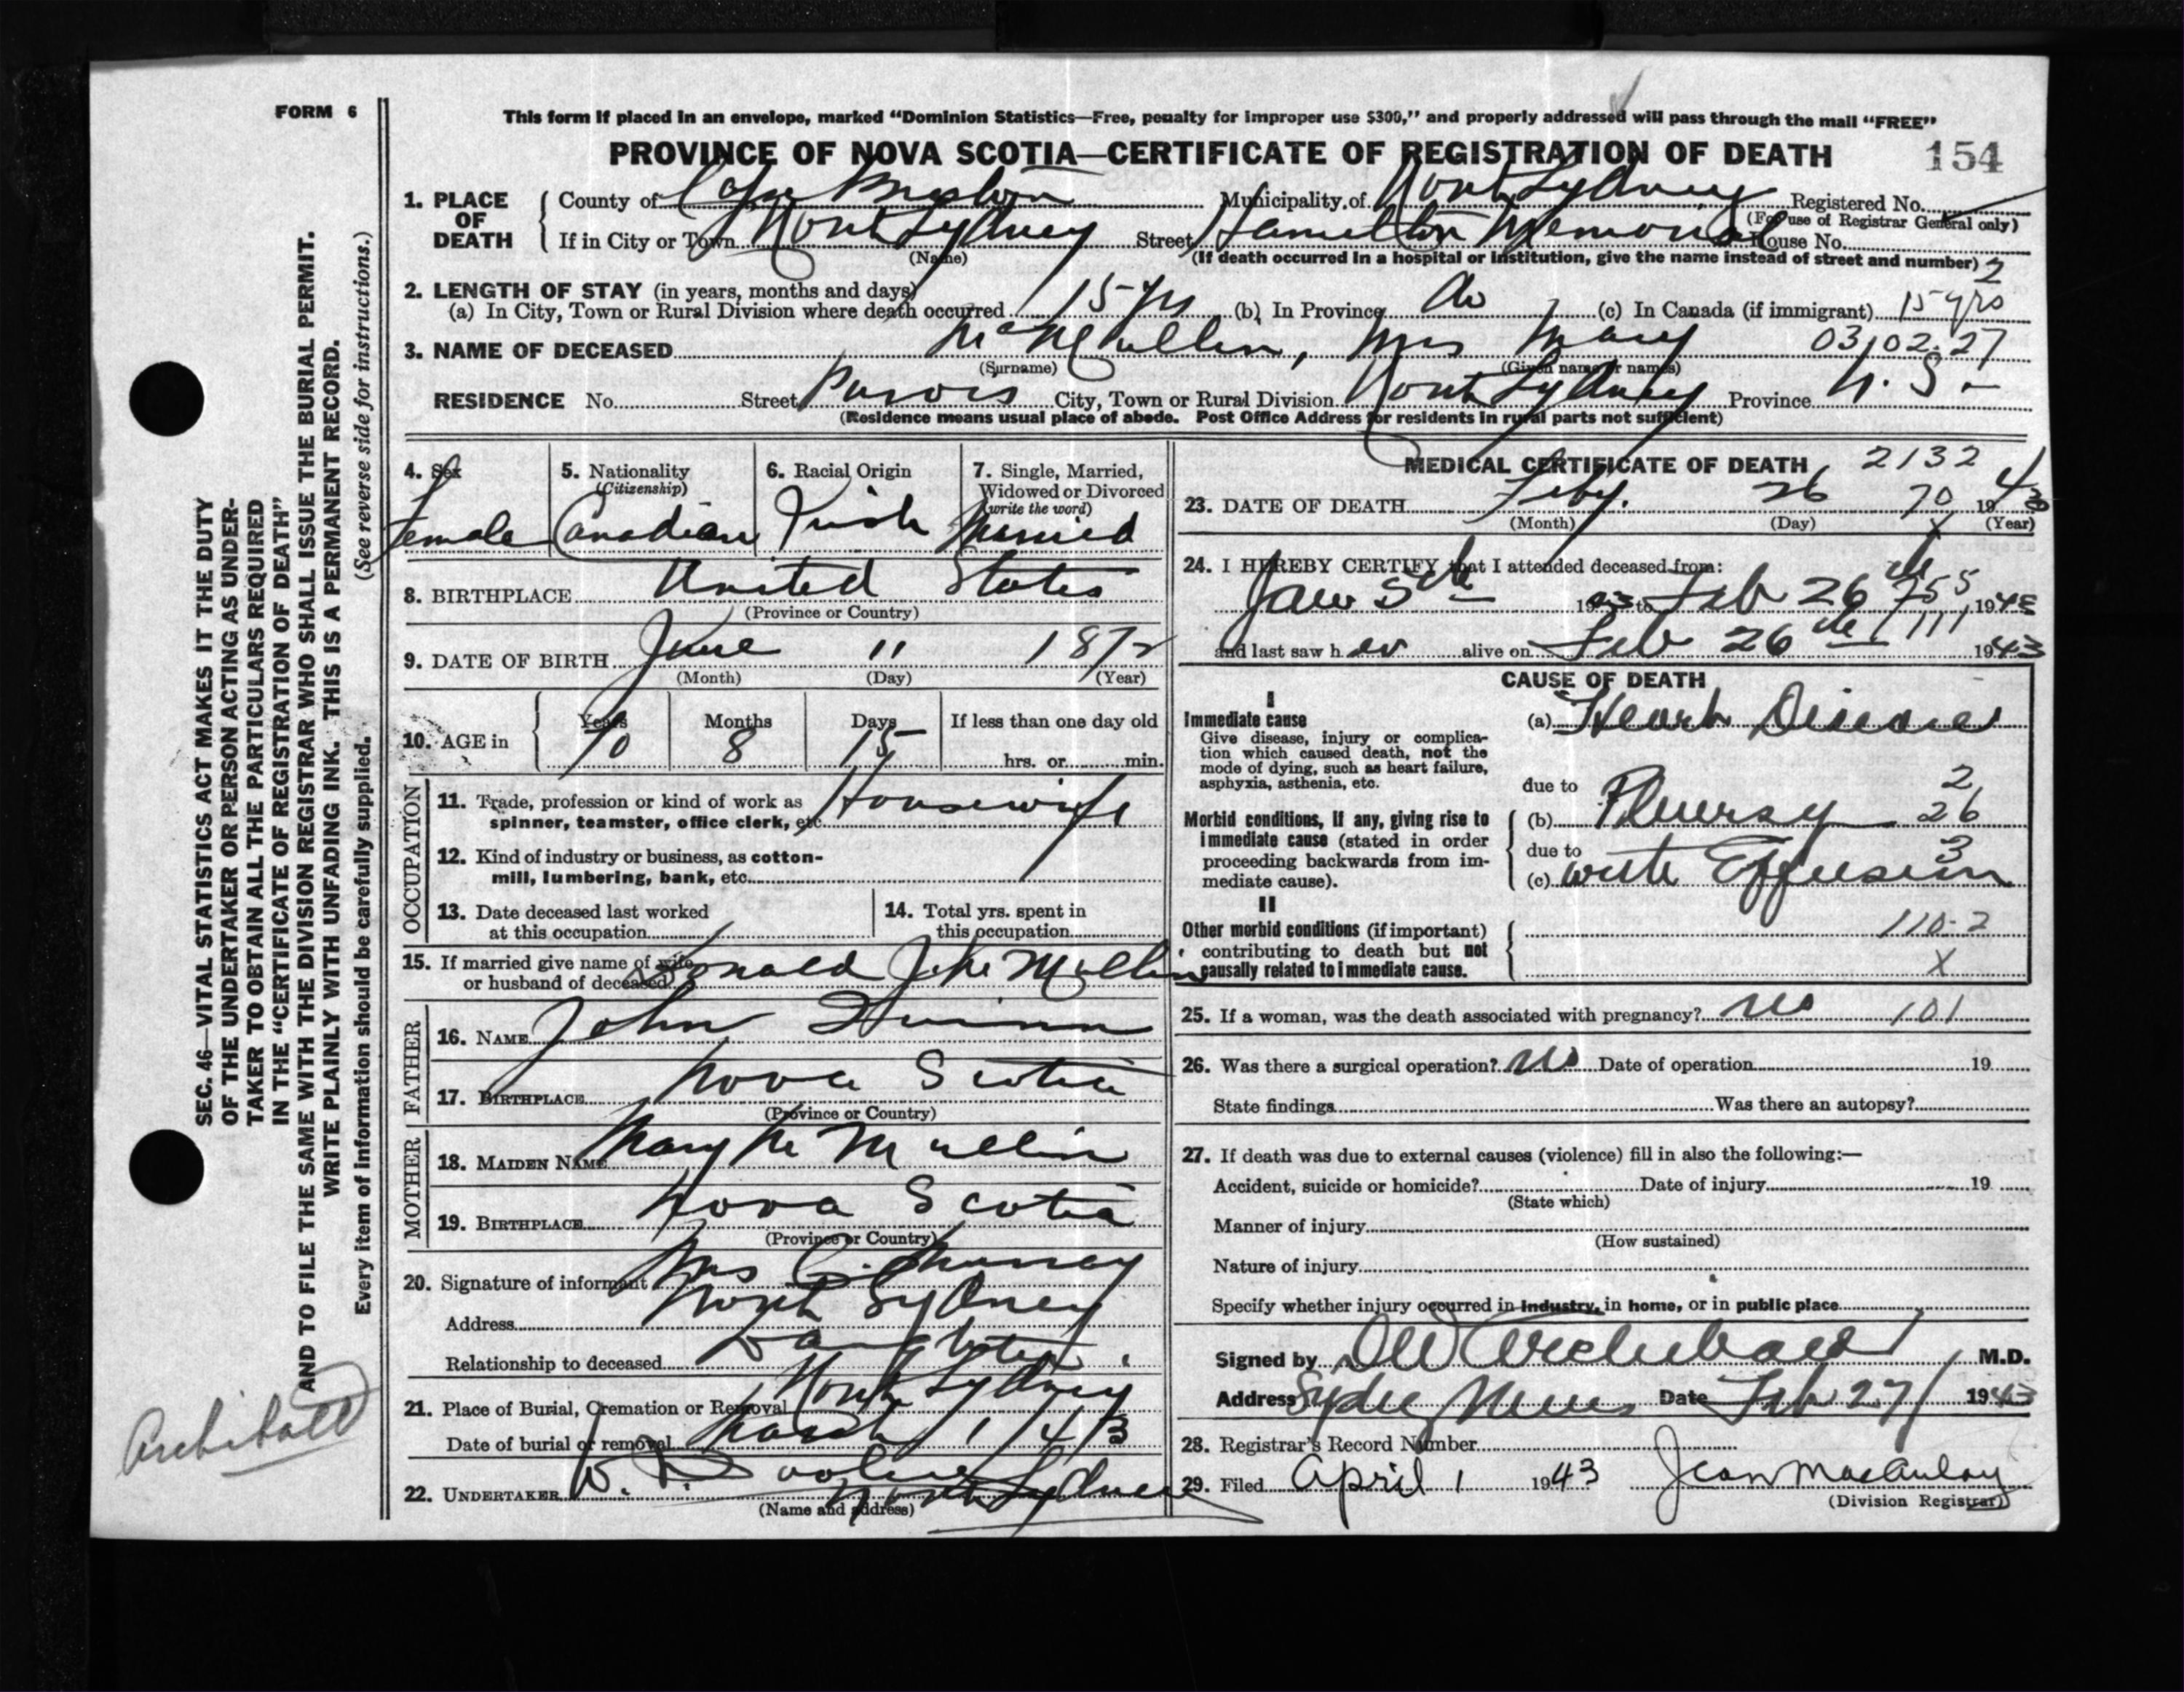 FORM 6
This form if placed in an envelope, marked “Dominion Statistics—Free, penalty for improper use $300,” and properly addressed will pass through the mail “FREE”
PROVINCE OF NOVA SCOTIA—CERTIFICATE OF REGISTRATION OF DEATH 154
1. PLACE OF DEATH
County of Cape Breton Municipality of North Sydney Registered No.
(For use of Registrar General only)
If in City or Town North Sydney Street Hamilton Memorial House No.
(Name)
(If death occurred in a hospital or institution, give the name instead of street and number) 2
2. LENGTH OF STAY (in years, months and days)
(a) In City, Town or Rural Division where death occurred 15 yrs (b) In Province do (c) In Canada (if immigrant) 15 yrs
3. NAME OF DECEASED McMullin, Mrs Mary 03 02 27
(Surname) (Given name or names)
RESIDENCE No. Street City, Town or Rural Division North Sydney Province N.S.
(Residence means usual place of abode. Post Office Address for residents in rural parts not sufficient)
4. Sex
Female
5. Nationality
(Citizenship)
Canadian
6. Racial Origin
Irish
7. Single, Married,
Widowed or Divorced
(write the word)
Married
8. BIRTHPLACE United States
(Province or Country)
9. DATE OF BIRTH June 11 1872
(Month) (Day) (Year)
10. AGE in
Years Months Days If less than one day old
70 8 15 hrs. or min.
OCCUPATION
11. Trade, profession or kind of work as
spinner, teamster, office clerk, etc. Housewife
12. Kind of industry or business, as cotton-
mill, lumbering, bank, etc.
13. Date deceased last worked
at this occupation
14. Total yrs. spent in
this occupation
15. If married give name of wife
or husband of deceased Donald J. McMullin
FATHER
16. NAME John Quinn
17. BIRTHPLACE Nova Scotia
(Province or Country)
MOTHER
18. MAIDEN NAME Mary McMullin
19. BIRTHPLACE Nova Scotia
(Province or Country)
20. Signature of informant Mrs C. Murray
Address North Sydney
Relationship to deceased Daughter
21. Place of Burial, Cremation or Removal North Sydney
Date of burial or removal March 1/43
22. UNDERTAKER W. North Sydney
(Name and address)
MEDICAL CERTIFICATE OF DEATH 2132
23. DATE OF DEATH Feby. 26 70 1943
(Month) (Day) (Year)
X
24. I HEREBY CERTIFY that I attended deceased from:
Jan 5th 1943 to Feb 26th 755 1943
and last saw her alive on Feb 26th 111 1943
CAUSE OF DEATH
I
Immediate cause
Give disease, injury or complica-
tion which caused death, not the
mode of dying, such as heart failure,
asphyxia, asthenia, etc.
(a) Heart Disease
due to 2
Morbid conditions, if any, giving rise to
immediate cause (stated in order
proceeding backwards from im-
mediate cause).
(b) Pleuresy 26
due to 3
(c) with Effusion
II
Other morbid conditions (if important)
contributing to death but not
causally related to immediate cause.
110-2
X
25. If a woman, was the death associated with pregnancy? no 101
26. Was there a surgical operation? no Date of operation 19
State findings Was there an autopsy?
27. If death was due to external causes (violence) fill in also the following:—
Accident, suicide or homicide? Date of injury 19
(State which)
Manner of injury
(How sustained)
Nature of injury
Specify whether injury occurred in industry, in home, or in public place
Signed by Archibald M.D.
Address Sydney Mines Date Feb 27/ 1943
28. Registrar's Record Number
29. Filed April 1 1943 Jean MacAulay
(Division Registrar)
SEC. 46—VITAL STATISTICS ACT MAKES IT THE DUTY
OF THE UNDERTAKER OR PERSON ACTING AS UNDER-
TAKER TO OBTAIN ALL THE PARTICULARS REQUIRED
IN THE “CERTIFICATE OF REGISTRATION OF DEATH”
AND TO FILE THE SAME WITH THE DIVISION REGISTRAR WHO SHALL ISSUE THE BURIAL PERMIT.
WRITE PLAINLY WITH UNFADING INK. THIS IS A PERMANENT RECORD.
Every item of information should be carefully supplied. (See reverse side for instructions.)
Archibald